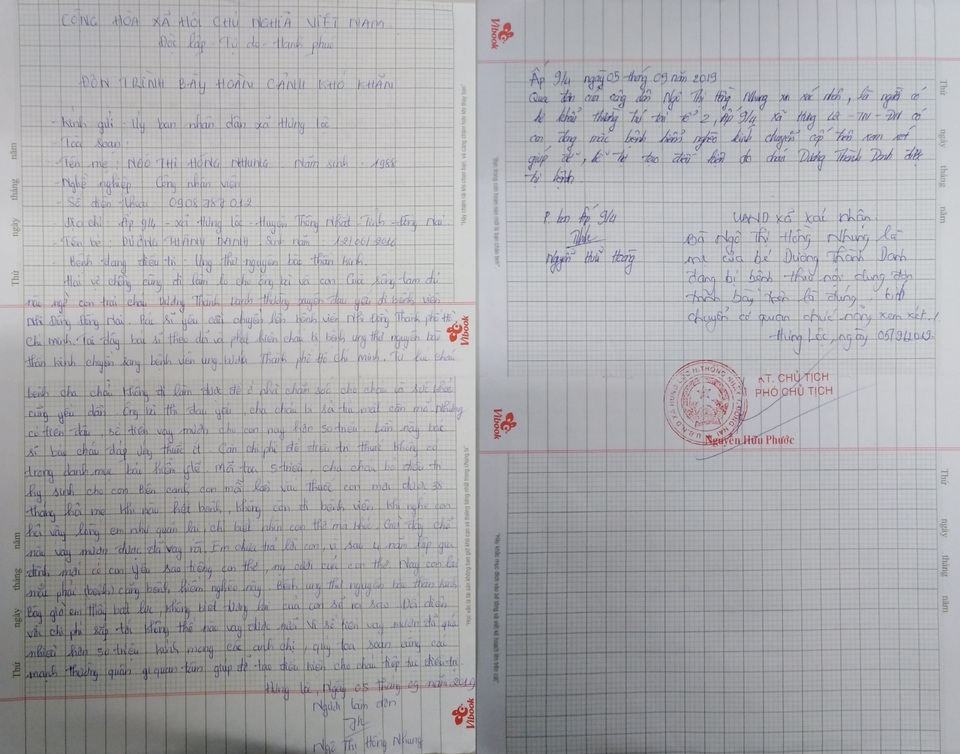 CỘNG HÒA XÃ HỘI CHỦ NGHĨA VIỆT NAM
Độc lập - Tự do - Hạnh phúc
ĐƠN TRÌNH BÀY HOÀN CẢNH KHÓ KHĂN
- Kính gửi - Ủy ban nhân dân xã Hưng lộc
- Toà soạn:
- Tên mẹ: NGÔ THỊ HỒNG NHUNG. Năm sinh: 1988
- Nghề nghiệp: Công nhân viên
- Số điện thoại: 0908787012
- Địa chỉ: Ấp 9/4 - xã Hưng lộc - Huyện Thống Nhất - Tỉnh - Đồng Nai
- Tên bé: DƯƠNG THÀNH DANH Sinh năm
Bệnh đang điều trị: Ung thư nguyên bào thần kinh.
Hai vợ chồng cũng đi làm lo cho ông bà và con. Cuộc sống tạm đủ
con trai cháu Dương Thành Danh thường xuyên đau yếu đi bệnh viện
Nhi Đồng Đồng Nai. Bác sĩ yêu cầu chuyển lên bệnh viện Nhi Đồng Thành phố Hồ
Chí Minh. Tại đây bác sĩ theo dõi và phát hiện cháu bị bệnh ung thư nguyên bào
thần kinh chuyển sang bệnh viện ung bướu Thành phố Hồ Chí Minh. Từ lúc cháu
bệnh cha cháu không đi làm được để ở phụ chăm sóc cho cháu và sức khỏe
cũng yếu dần. Ông bà thì đau yếu, cha cháu là
có tiền đâu, số tiền vay mượn cho con nay hơn 50 triệu. Lần này bác
sĩ báo cháu đáp ứng thuốc ít. Cần chi phí để điều trị thuốc không có
trong danh mục bảo hiểm 5 triệu, cha cháu bỏ điều trị
hy sinh cho con. Bên cạnh con mỗi lần vào thuốc con mới được 33
tháng hỏi mẹ khi nào hết bệnh, không cần đi bệnh viện. Khi nghe con
hỏi vậy lòng em như quặn lại, chỉ biết nhìn con thế mà khóc. Giờ đây chỗ
nào vay mượn được đã vay rồi, Em chưa trả lời con, vì sau 4 năm lập gia
đình mới có con. Nay con lại
mắc phải (bệnh) căn bệnh hiểm nghèo này. Bệnh ung thư nguyên bào thần kinh
Bây giờ em thấy bất lực không biết tương lai của con sẽ ra sao. Đối diện
với chi phí sắp tới không thể nào vay được nữa vì số tiền vay mượn đã quá
nhiều hơn 50 triệu. Kính mong các anh chị, quý tòa soạn cùng các
mạnh thường quân quan tâm giúp đỡ tạo điều kiện cho cháu tiếp tục điều trị.
Hưng lộc, Ngày 05 tháng 09 năm 2019
Người làm đơn
Ngô Thị Hồng Nhung
Ấp 9/4 ngày 05 tháng 09 năm 2019
Qua đơn của công dân Ngô Thị Hồng Nhung xin xác nhận, là người có
hộ khẩu thường trú tại tổ 2, Ấp 9/4 xã Hưng Lộc - TN - ĐN có
con đang mắc bệnh hiểm nghèo kính chuyển cấp trên xem xét
giúp đỡ, để tạo điều kiện cho cháu Dương Thành Danh được
trị bệnh.
T. ban Ấp 9/4
Nguyễn Hữu Hoàng
UBND xã xác nhận
Bà Ngô Thị Hồng Nhung là
mẹ của bé Dương Thành Danh
đang bị bệnh như nội dung đơn
trình bày trên là đúng, kính
chuyển cơ quan chức năng xem xét./
Hưng Lộc, ngày 05/9/2019.
KT. CHỦ TỊCH
PHÓ CHỦ TỊCH
Nguyễn Hữu Phước
Vibook
Vibook
Vibook
Vibook
Vibook
Thứ ngày tháng năm
Thứ ngày tháng năm
Thứ ngày tháng năm
Thứ ngày tháng năm